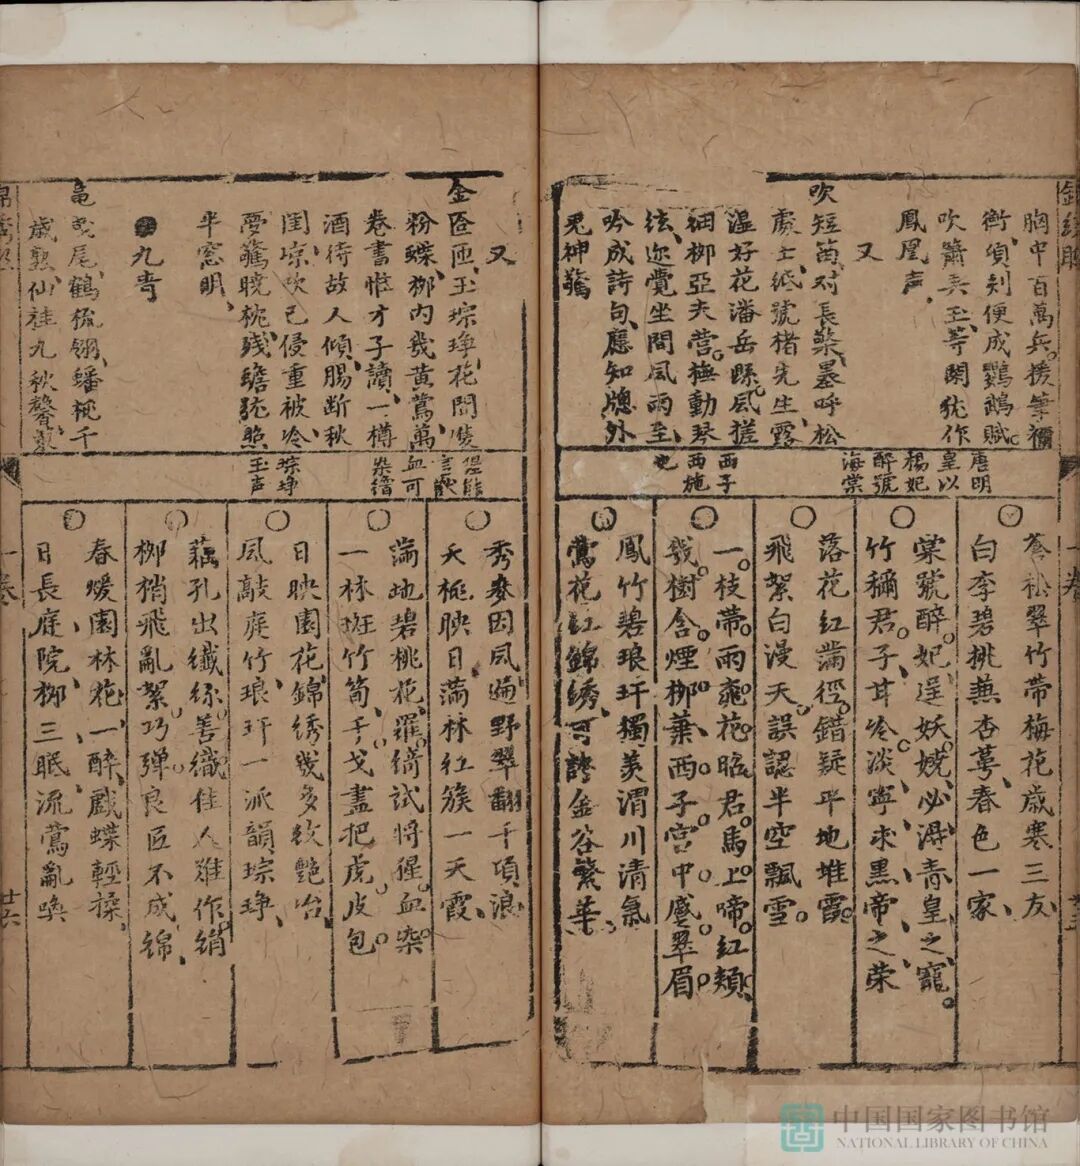 胸中百萬兵援筆禰
衡頃刻便成鸚鵡賦
吹簫弄玉等閑犹作
鳳凰声
又
吹短笛对長檠墨呼松
處士紙號楮先生露
温好花潘岳縣風搓
細柳亞夫营撫動琴
絃迩覺坐間風雨至
吟成詩句應知牕外
鬼神驚
唐明
皇以
楊妃
醉號
海棠
西子
西施
也
蒼松翠竹帶梅花歲寒三友
白李碧桃兼杏萼春色一家
棠號醉妃逞妖嬈必得青皇之寵
竹稱君子甘冷淡寧求黑帝之荣
落花红滿徑錯疑平地堆霞
飛絮白漫天誤認半空飄雪
一枝帶雨花昭君馬上啼红頰
幾樹含煙柳葉西子宫中蹙翠眉
鳳竹碧琅玕獨羡渭川清氣
鶯花红錦绣可誇金谷繁華
又
金匼匝玉琮琤花間雙
粉蝶柳内幾黄鶯萬
卷書惟才子讀一樽
酒待故人傾腸断秋
閨凉吹已侵重被冷
夢驚曉枕残蟾犹照
半窓明
九青
尾鶴梳翎蟠桃千
歲熟仙桂九秋馨
猩能
言
血可
染繒
琮琤
玉声
秀麥因風遍野翠翻千頃浪
夭桃映日滿林红簇一天霞
滿地碧桃花羅綺試將猩血染
一林斑竹筍干戈盡把虎皮包
日映園花錦绣幾多紋艷冶
風敲庭竹琅玕一派韻琮琤
藕孔出纖絲善織佳人难作絹
柳梢飛亂絮巧弹良匠不成綿
春煖園林花一醉戲蝶輕
日長庭院柳三眠流鶯亂喚
廿六
中国国家图书馆
NATIONAL LIBRARY OF CHINA